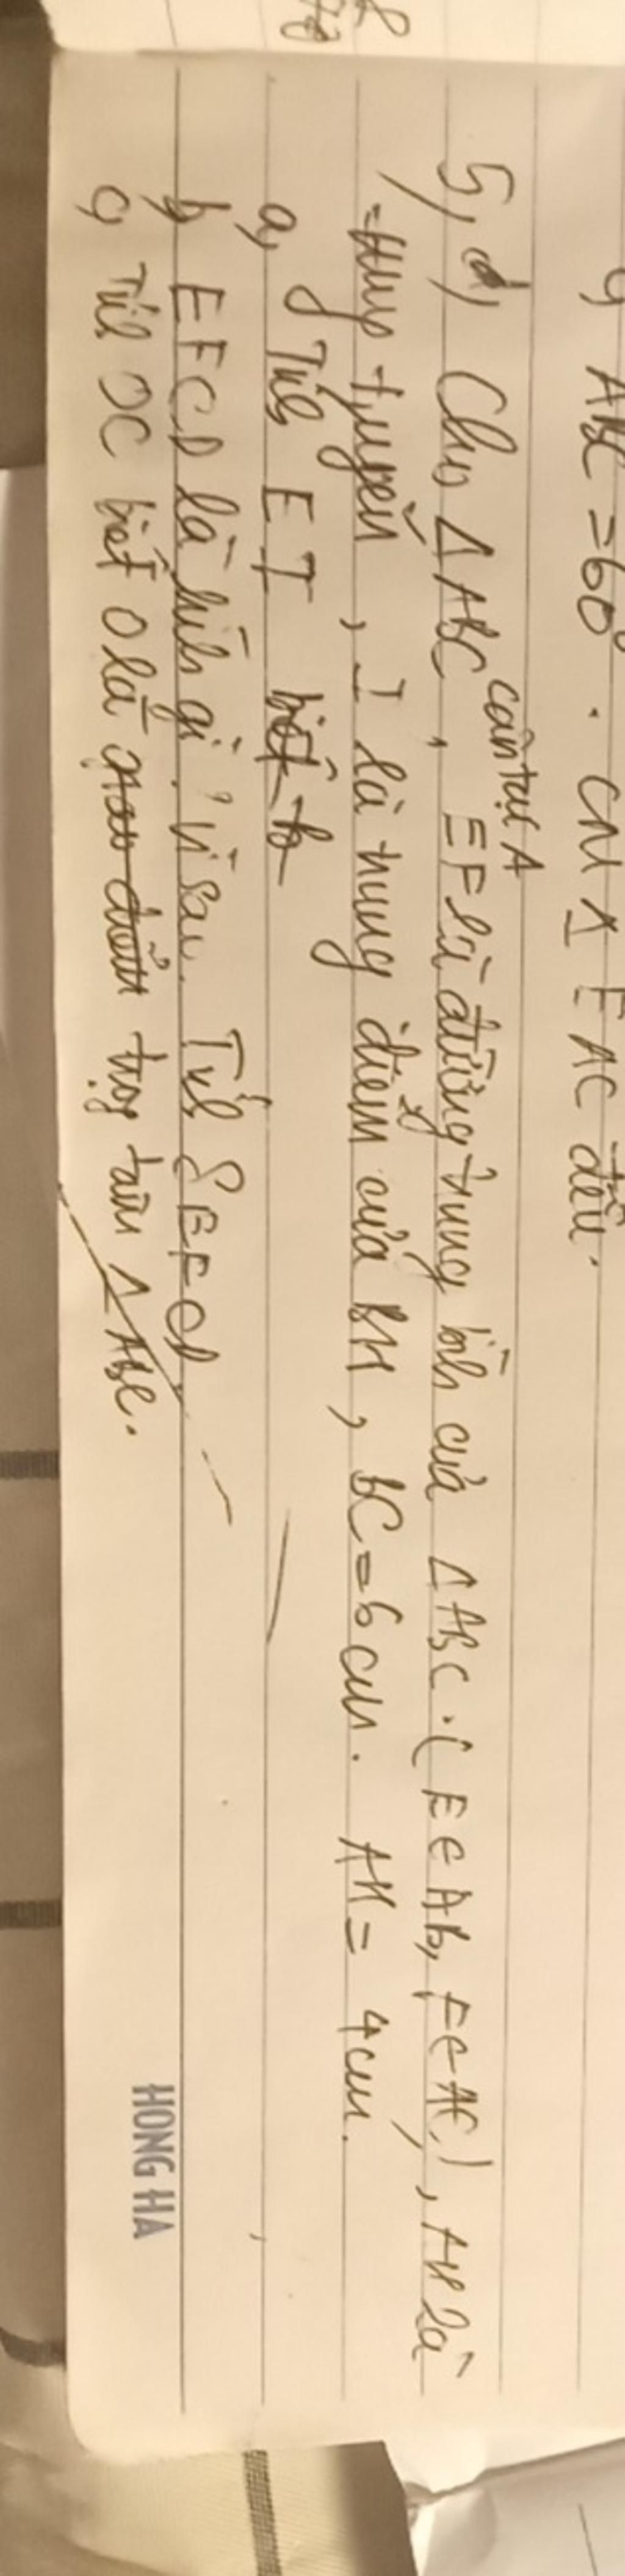 c, ABC = 60°. CM Δ EAC đều.
5, a, Cho Δ ABC cân tại A, EF là đường trung bình của Δ ABC. (E ∈ AB, F ∈ AC), AH là
trung tuyến, I là trung điểm của BH, BC = 6 cm. AH = 4 cm.
a, Tính EI
b, EFCD là hình gì? Vì sao. Tính S EFCD
c, Tính OC biết O là trọng tâm Δ ABC.
HONG HA